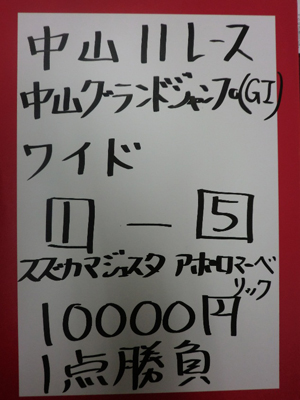 中山11レース
中山グランドジャンプ(GI)
ワイド
11 — 5
スズカマジェスタ アポロマーベリック
10000円
1点勝負